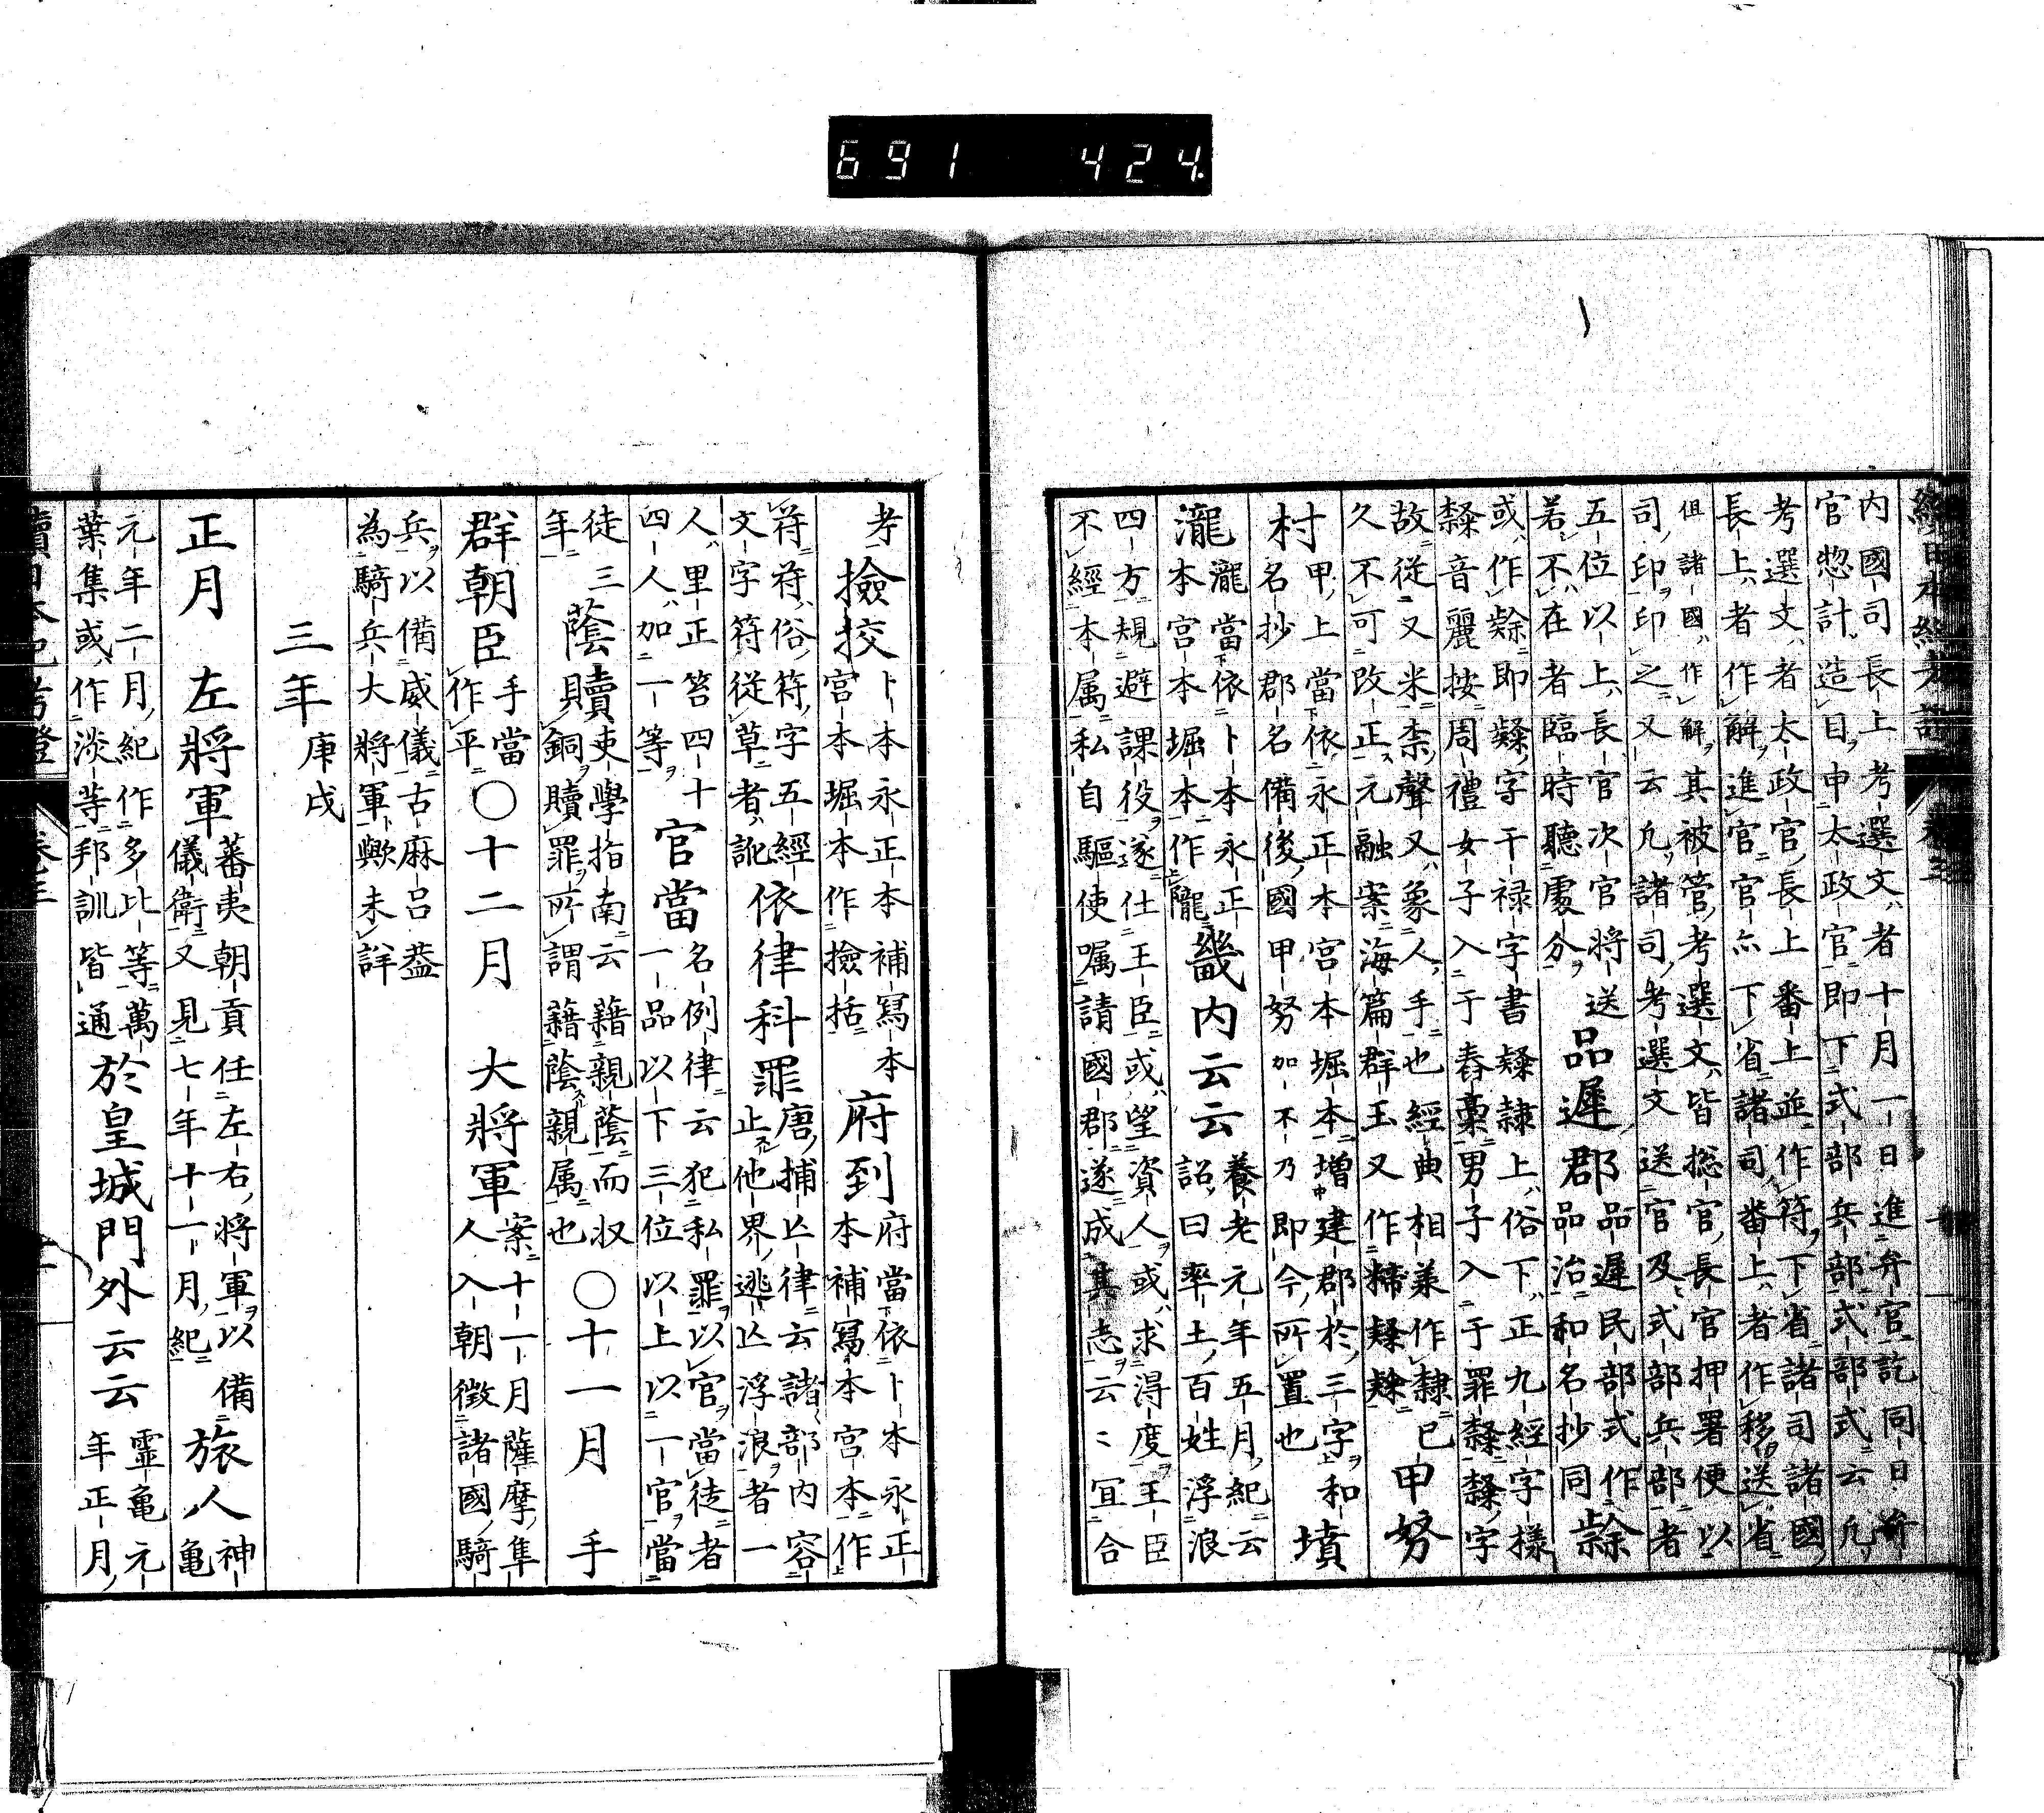 691 424.
内國司長上考選文者十月一日進弁官訖同日弁
官惣計造目申太政官即下式部兵部式部式云凡
考選文者太政官長上番上並作符下省諸司諸國
長上者作解進官官亦下省諸司番上者作移送省
但諸國作解其被管考選文皆捴官長官押署便以
司印印之又云凡諸司考選文送官及式部兵部者
五位以上長官次官將送
若不在者臨時聽處分
品遲郡
品遲民部式作
品治和名抄同
或作
即
字干禄字書
隸上俗下正九經字樣
音麗按周禮女子入于舂藁男子入于罪
字
故從又米柰聲又象人手也經典相羕作隸已
久不可改正元融案海篇群玉又作
甲努
村
甲上當依永正本宮本堀本增建郡於三字和
名抄郡名備後國甲努加不乃即今所置也
墳
瀧
瀧當依卜本永正
本宮本堀本作隴
畿内云云
養老元年五月紀云
詔曰率土百姓浮浪
四方規避課役遂仕王臣或望資人或求得度王臣
不經本属私自驅使嘱請國郡遂成其志云〻宜合
考
撿挍
卜本永正本補寫本
宮本堀本作撿括
府到
府當依卜本永正
本補寫本宮本作
符符俗符字五經
文字符從草者訛
依律科罪
唐捕亾律云諸部内容
止他界逃亾浮浪者一
人里正笞四十
四人加一等
官當
名例律云犯私罪以官當徒者
一品以下三位以上以一官當
徒三
年
蔭贖
吏學指南云藉親蔭而収
銅贖罪所謂藉蔭親属也
〇十一月　手
群朝臣
手當
作平
〇十二月　大將軍
案十一月薩摩隼
人入朝徵諸國騎
兵以備威儀古麻呂葢
為騎兵大將軍歟未詳
三年庚戌
正月　左將軍
蕃夷朝貢任左右將軍以備
儀衛又見七年十一月紀
旅人
神
亀
元年二月紀作多比等萬
葉集或作淡等邦訓皆通
於皇城門外云云
靈亀元
年正月